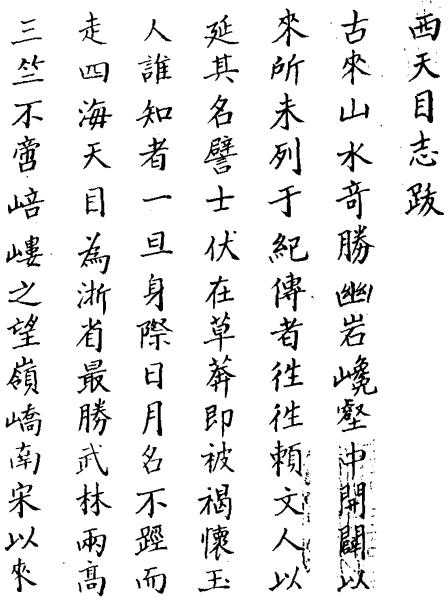 西天目志跋
古來山水竒勝幽岩巉壑中開闢以
來所未列于紀傳者徃徃賴文人以
延其名譬士伏在草莽即被褐懷玉
人誰知者一旦身際日月名不踁而
走四海天目為浙省最勝武林兩髙
三竺不啻㟝嶁之望嶺嶠南宋以來